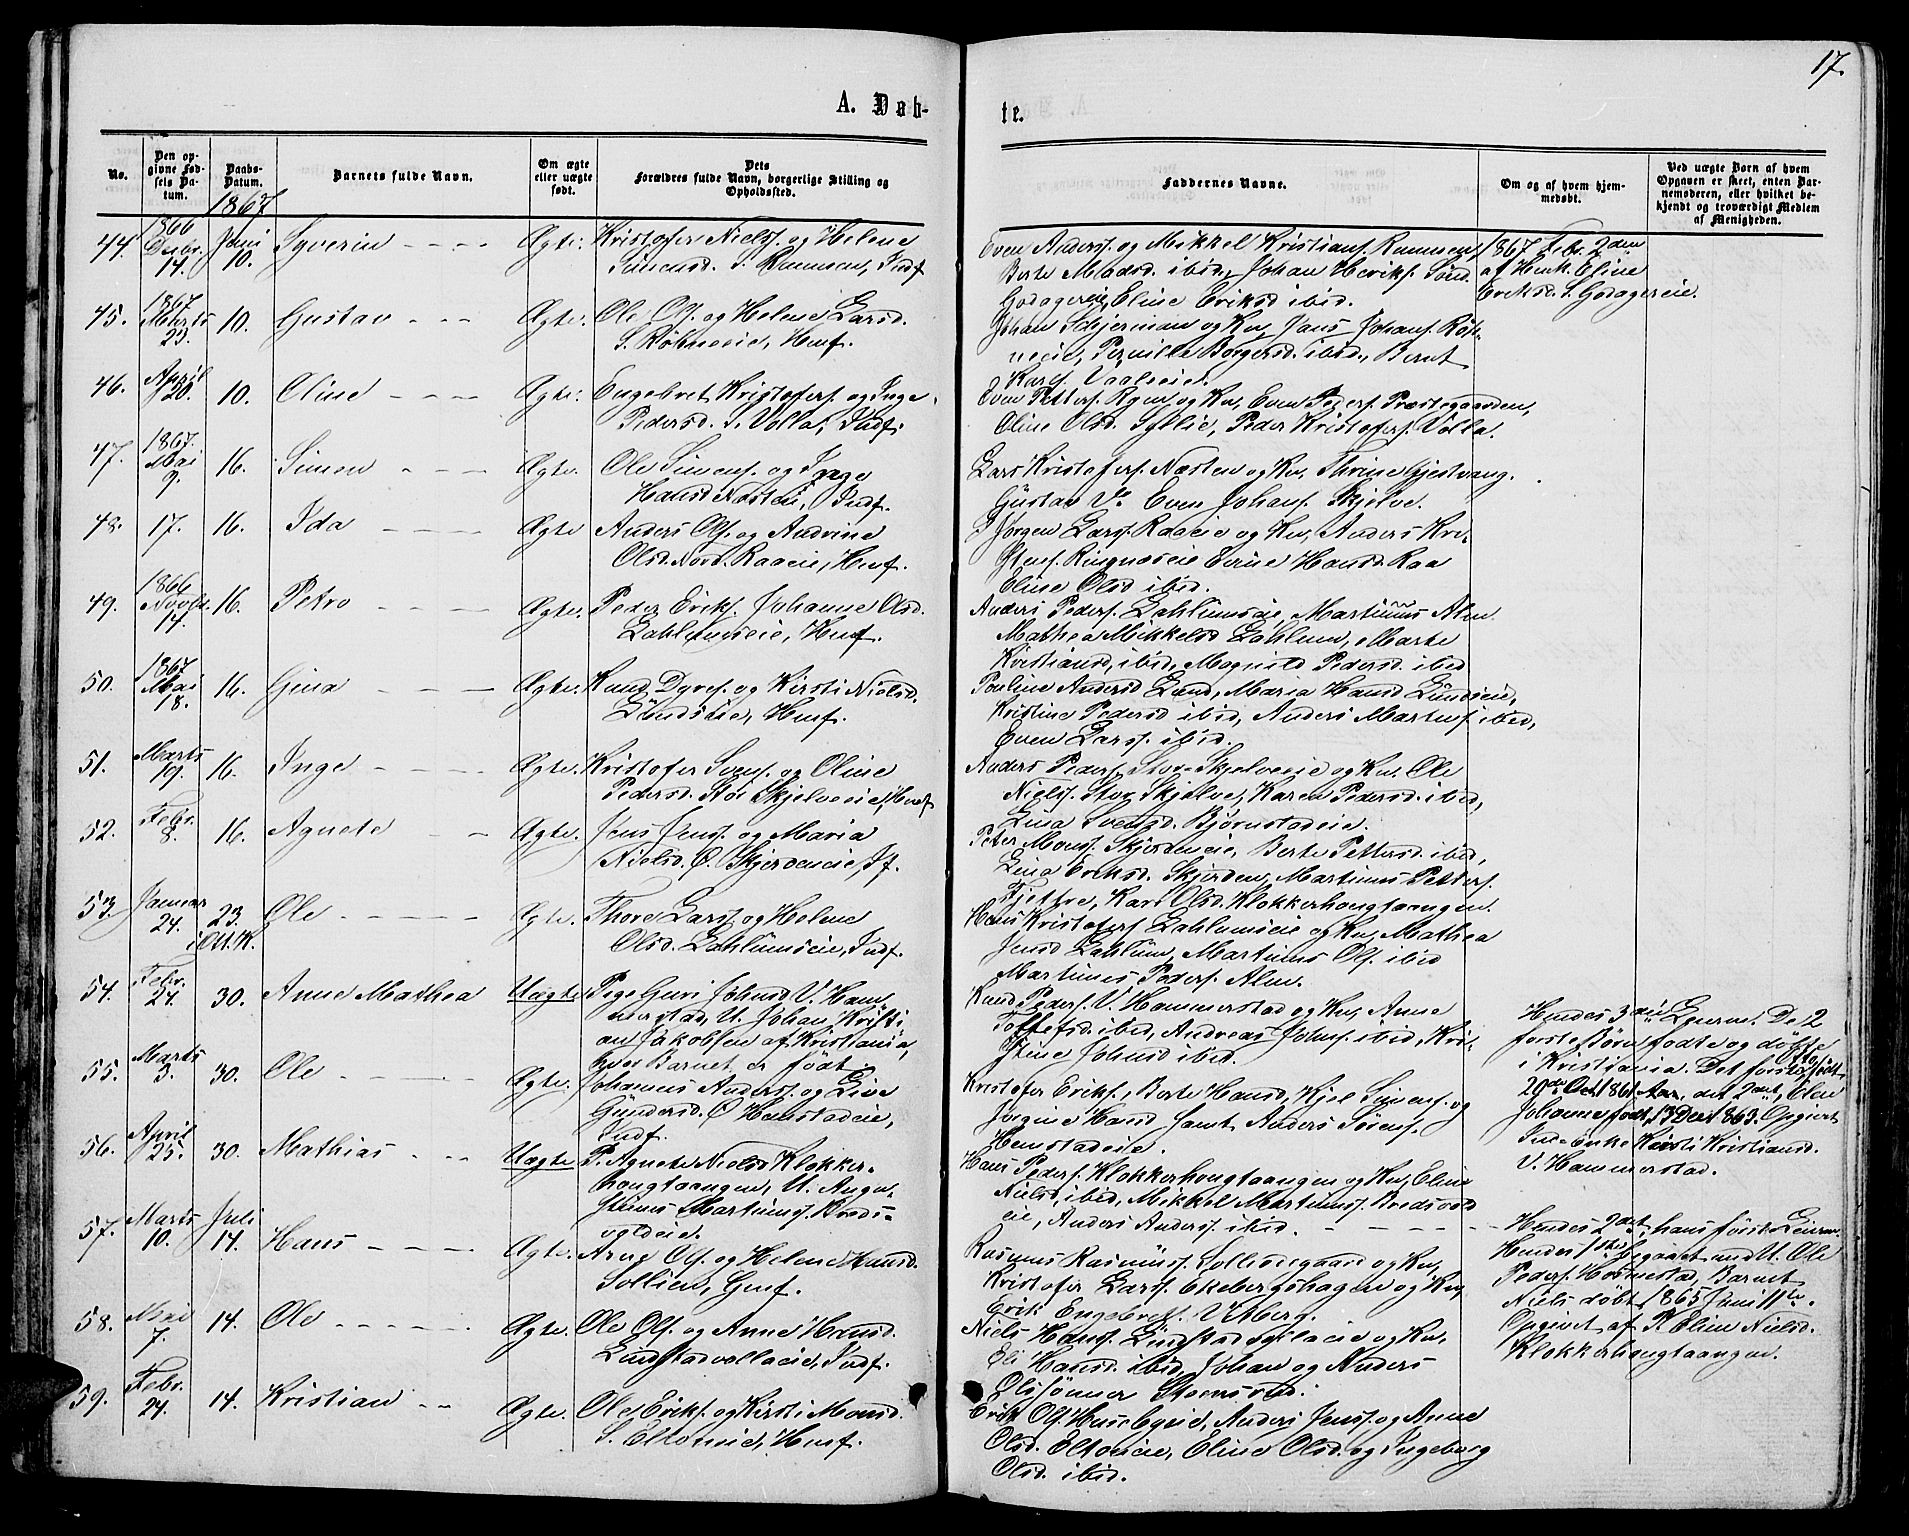 17.
A. Døb-
te.
No.
Den op-
givne Fød-
sels Da-
tum.
Daabs-
Datum.
Barnets fulde Navn.
Om ægte
eller uægte
født.
Dets
Forældres fulde Navn, borgerlige Stilling og
Opholdssted.
Faddernes Navne.
Om og af hvem hjem-
medøbt.
Ved uægte Børn af hvem
Opgaven er skeet, enten Bar-
nemoderen, eller hvilket be-
kjendt og troværdigt Medlem
af Menigheden.
1867
44. 1866 Decbr. 14. Juni 10. Syverin Ægte. Kristofer Nielss. og Helene
Simensd. S. Ramsen, Indf.
Even Anderss. og Mikkel Kristians. Ramsen,
Berte Madsd. ibid, Johan Henriks. Sønd.
Godagereie, Eline Eriksd ibid.
1867 Febr. 2den
af Henk. Eline
Eriksd. S. Godagereie.
45. 1867 Marts 23. 10. Gustav Ægte. Ole Ols. og Helene Larsd.
S. Røhneeie, Husf.
Johan Schjerman og Kv, Jans Johans. Røh-
neeie, Pernille Børgersd. ibid., Bernt
Karls. Vaaleeie.
46. April 20. 10. Oline Ægte. Engebret Kristofers. og Inge
Pedersd. S. Volla, Indf.
Even Petters. Ryen og Kv, Even Peders. Præstegaarden,
Oline Olsd. Syllie, Peder Kristofers. Volla.
47. 1867. Mai 9. 16. Simen Ægte. Ole Simens. og Inge
Hansd Næsteie, Indf.
Lars Kristofers. Næsten og Kv, Thrine Gjestvang.
Gustav V. Even Johans. Skjelve.
48. 17. 16. Ida Ægte Anders Ols. og Andrine
Olsd. Nord. Raaeie, Husf.
Jørgen Larss. Raaeie og Kv, Anders Kri-
stens. Ringnæseie Evine Hansd. Raa
Eline Olsd ibid.
49. 1866 Novbr. 14. 16. Petra Ægte. Peder Eriks. Johanne Olsd.
Lahlumseie, Husf.
Anders Peders. Lahlumseie, Martinus Alm
Mathea Mikkelsd Lahlum, Marte
Kristiansd, ibid, Magnild Pedersd. ibid
50. 1867 Mai 18. 16. Gina Ægte. Knud Dyres. og Kirsti Nielsd.
Lundseie, Husf.
Pauline Andersd Lund, Maria Hansd Lundseie,
Kristine Pedersd ibid, Anders Martins. ibid,
Even Larss. ibid.
51. Marts 19. 16. Inge Ægte. Kristofer Svens. og Oline
Pedersd. Stor Skjelveeie, Husf
Anders Peders. Stor-Skjelveeie og Kv. Ole
Nielss. Stor Skjelve, Karen Pedersd. ibid,
Lina Svensd. Bjørnstadeie.
52. Febr. 8. 16. Agnete Ægte. Jens Jenss. og Maria
Nielsd. Ø. Skjerdeneie, If.
Peter Monss. Skjerdeneie, Berte Pettersd. ibid,
Lina Eriksd. Skjerden, Martinus Petters.
Fjetre, Kari Olsd. Klokkerhougtaangen.
53. Januar 24. 23. i Ott. K. Ole Ægte. Thore Larss. og Helene
Olsd. Lahlumseie, Indf.
Hans Kristofers. Lahlumseie og Kv, Mathea
Jensd Lahlum, Martinus Ols. ibid
Martinus Peders. Alm.
54. Febr. 27. 30. Anne Mathea Uægte Pige Guri Johnsd V. Ham-
merstad, U. Johan Kristi-
an Jakobsen af Kristiania,
hvor Barnet er født.
Knud Peders. V. Hammerstad og Kv, Anne
Toffefsd. ibid, Andreas Johns. ibid, Kri-
stine Johnsd ibid.
Hendes 3die Leierm. De 2
første Børn fødte og døbte
i Kristiania. Det første, Olaf, født
20de Oct. 1861 Aar, det 2det, Oline
Johanne født 13 Dec. 1863. Opgivet
Inde Enke Kirsti Kristiansd.
V. Hammerstad.
55. Marts 3. 30. Ole Ægte. Johannes Anderss. og Live
Gundersd. Ø Hemstadeie,
Indf.
Kristofer Eriks., Berte Hansd, Kjel Simens. og
Jørgine Hansd, samt Anders Sørens.
Hemstadeie.
56. April 25. 30. Mathias Uægte P. Agnete Nielsd Klokker-
hougtaangen, U. Augu-
stinus Martinus. Breds-
voldeie.
Hans Peders. Klokkerhougtaangen og Kv, Eline
Nielsd, ibid, Mikkel Martinuss. Bredsvold
eie, Anders Anderss. ibid.
Hendes 2det, hans første Leierm.
Hendes 1ste begaaet med U. Ole
Peders. Hornestad, Barnet
Niels døbt 1865 Juni 11te.
Opgivet af P. Eline Nielsd.
Klokkerhougtaangen.
57. Marts 10. Juli 14. Hans Ægte. Arne Ols. og Helene Hansd.
Sollien, Gmf.
Rasmus Rasmuss. Sollisdegaard og Kv,
Kristofer Larss. Ekebergshagen og Kv,
Erik Engebrets. Viberg.
58. Mai 7. 14. Ole Ægte. Ole Ols. og Anne Hansd.
Lindstadvollaeie, Indf.
Niels Hanss. Lindstadvollaeie og Kv,
Eli Hansd. ibid, Johan og Anders
Olssønner Steensrud.
59. Febr. 24. 14. Kristian Ægte. Ole Eriks. og Kirsti Monsd.
S. Eltoneie, Husf.
Erik Ols. Huse Eyeie, Anders Jenss. og Anne
Olsd. Eltoneie, Eline Olsd. og Ingeborg
Olsd. ibid.